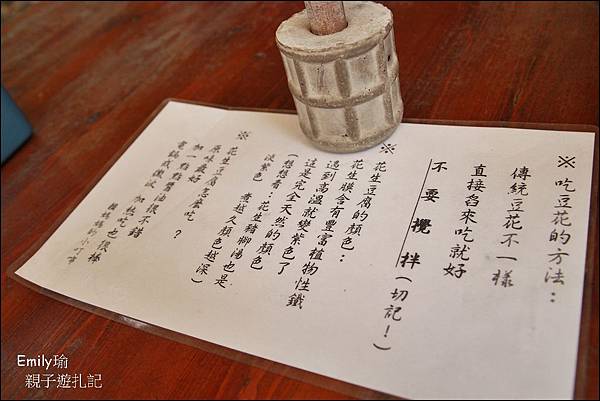 ※吃豆花的方法：
傳統豆花不一樣
直接舀來吃就好
不要攪拌(切記！)
※花生豆腐的顏色：
花生膜含有豐富植物性鐵
遇到高溫就變紫色了
這是完全天然的顏色
(想想看：花生豬腳湯也是
淡紫色　煮越久顏色越深)
※花生豆腐怎麼吃　？
原味最好
加一點點醬油很不錯
電鍋或微波加熱吃也很棒
媽媽的小叮嚀
Emily瑜
親子遊札記